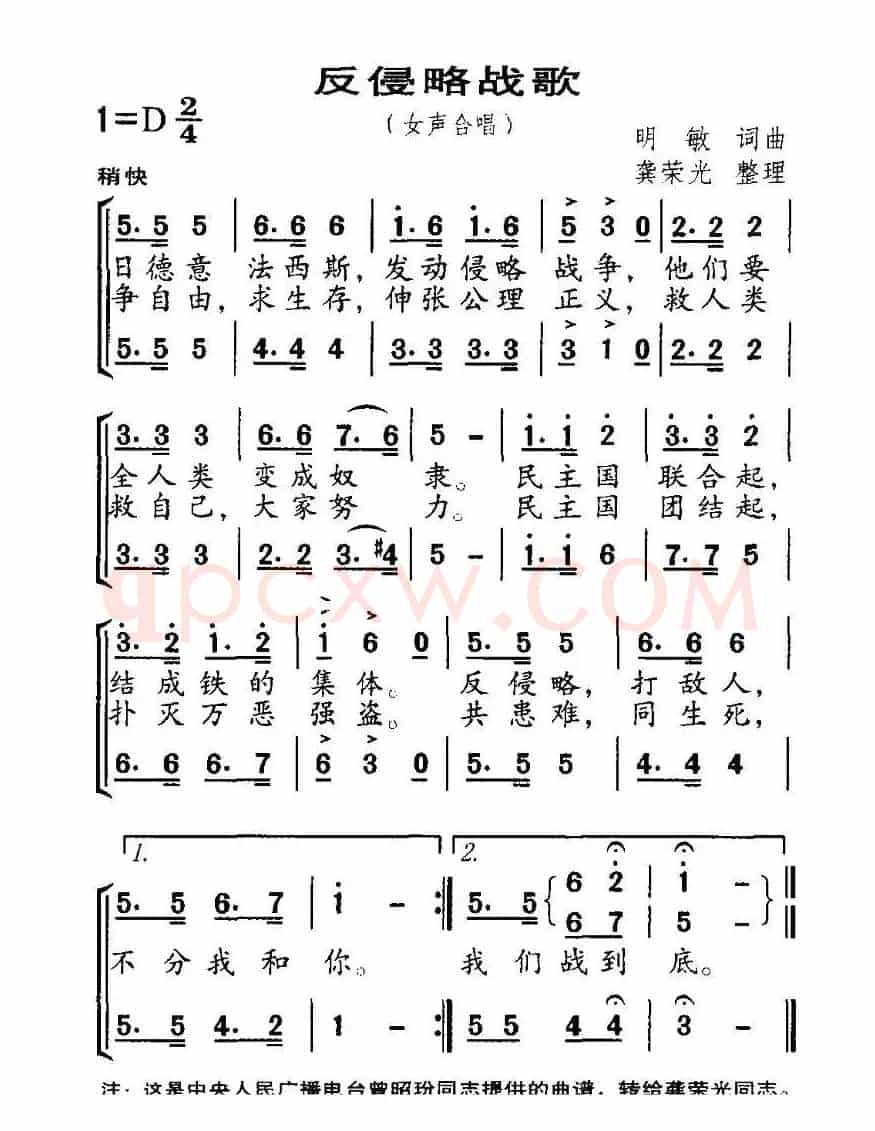 反侵略战歌
1=D 2/4
（女声合唱）
明 敏 词曲
稍快
龚荣光 整理
5. 5 5 | 6. 6 6 | 1. 6 1. 6 | 5 3 0 | 2. 2 2 |
日德意 法西斯，发动侵略 战争，他们要
争自由，求生存，伸张公理 正义，救人类
5. 5 5 | 4. 4 4 | 3. 3 3. 3 | 3 1 0 | 2. 2 2 |
3. 3 3 | 6. 6 7. 6 | 5 - | 1. 1 2 | 3. 3 2 |
全人类 变成奴 隶。 民主国 联合起，
救自己，大家努 力。 民主国 团结起，
3. 3 3 | 2. 2 3. #4 | 5 - | 1. 1 6 | 7. 7 5 |
3. 2 1. 2 | 1 6 0 | 5. 5 5 | 6. 6 6 |
结成铁的 集体。 反侵略， 打敌人，
扑灭万恶 强盗。 共患难， 同生死，
6. 6 6. 7 | 6 3 0 | 5. 5 5 | 4. 4 4 |
1. 2.
6 2 | 1 -
5. 5 6. 7 | 1 - :| 5. 5 6 7 | 5 - ||
不分我和 你。 我们战到 底。
5. 5 4. 2 | 1 - :| 5 5 4 4 | 3 - ||
注：这是中央人民广播电台曾昭玢同志提供的曲谱，转给龚荣光同志。
qpcxw.COM